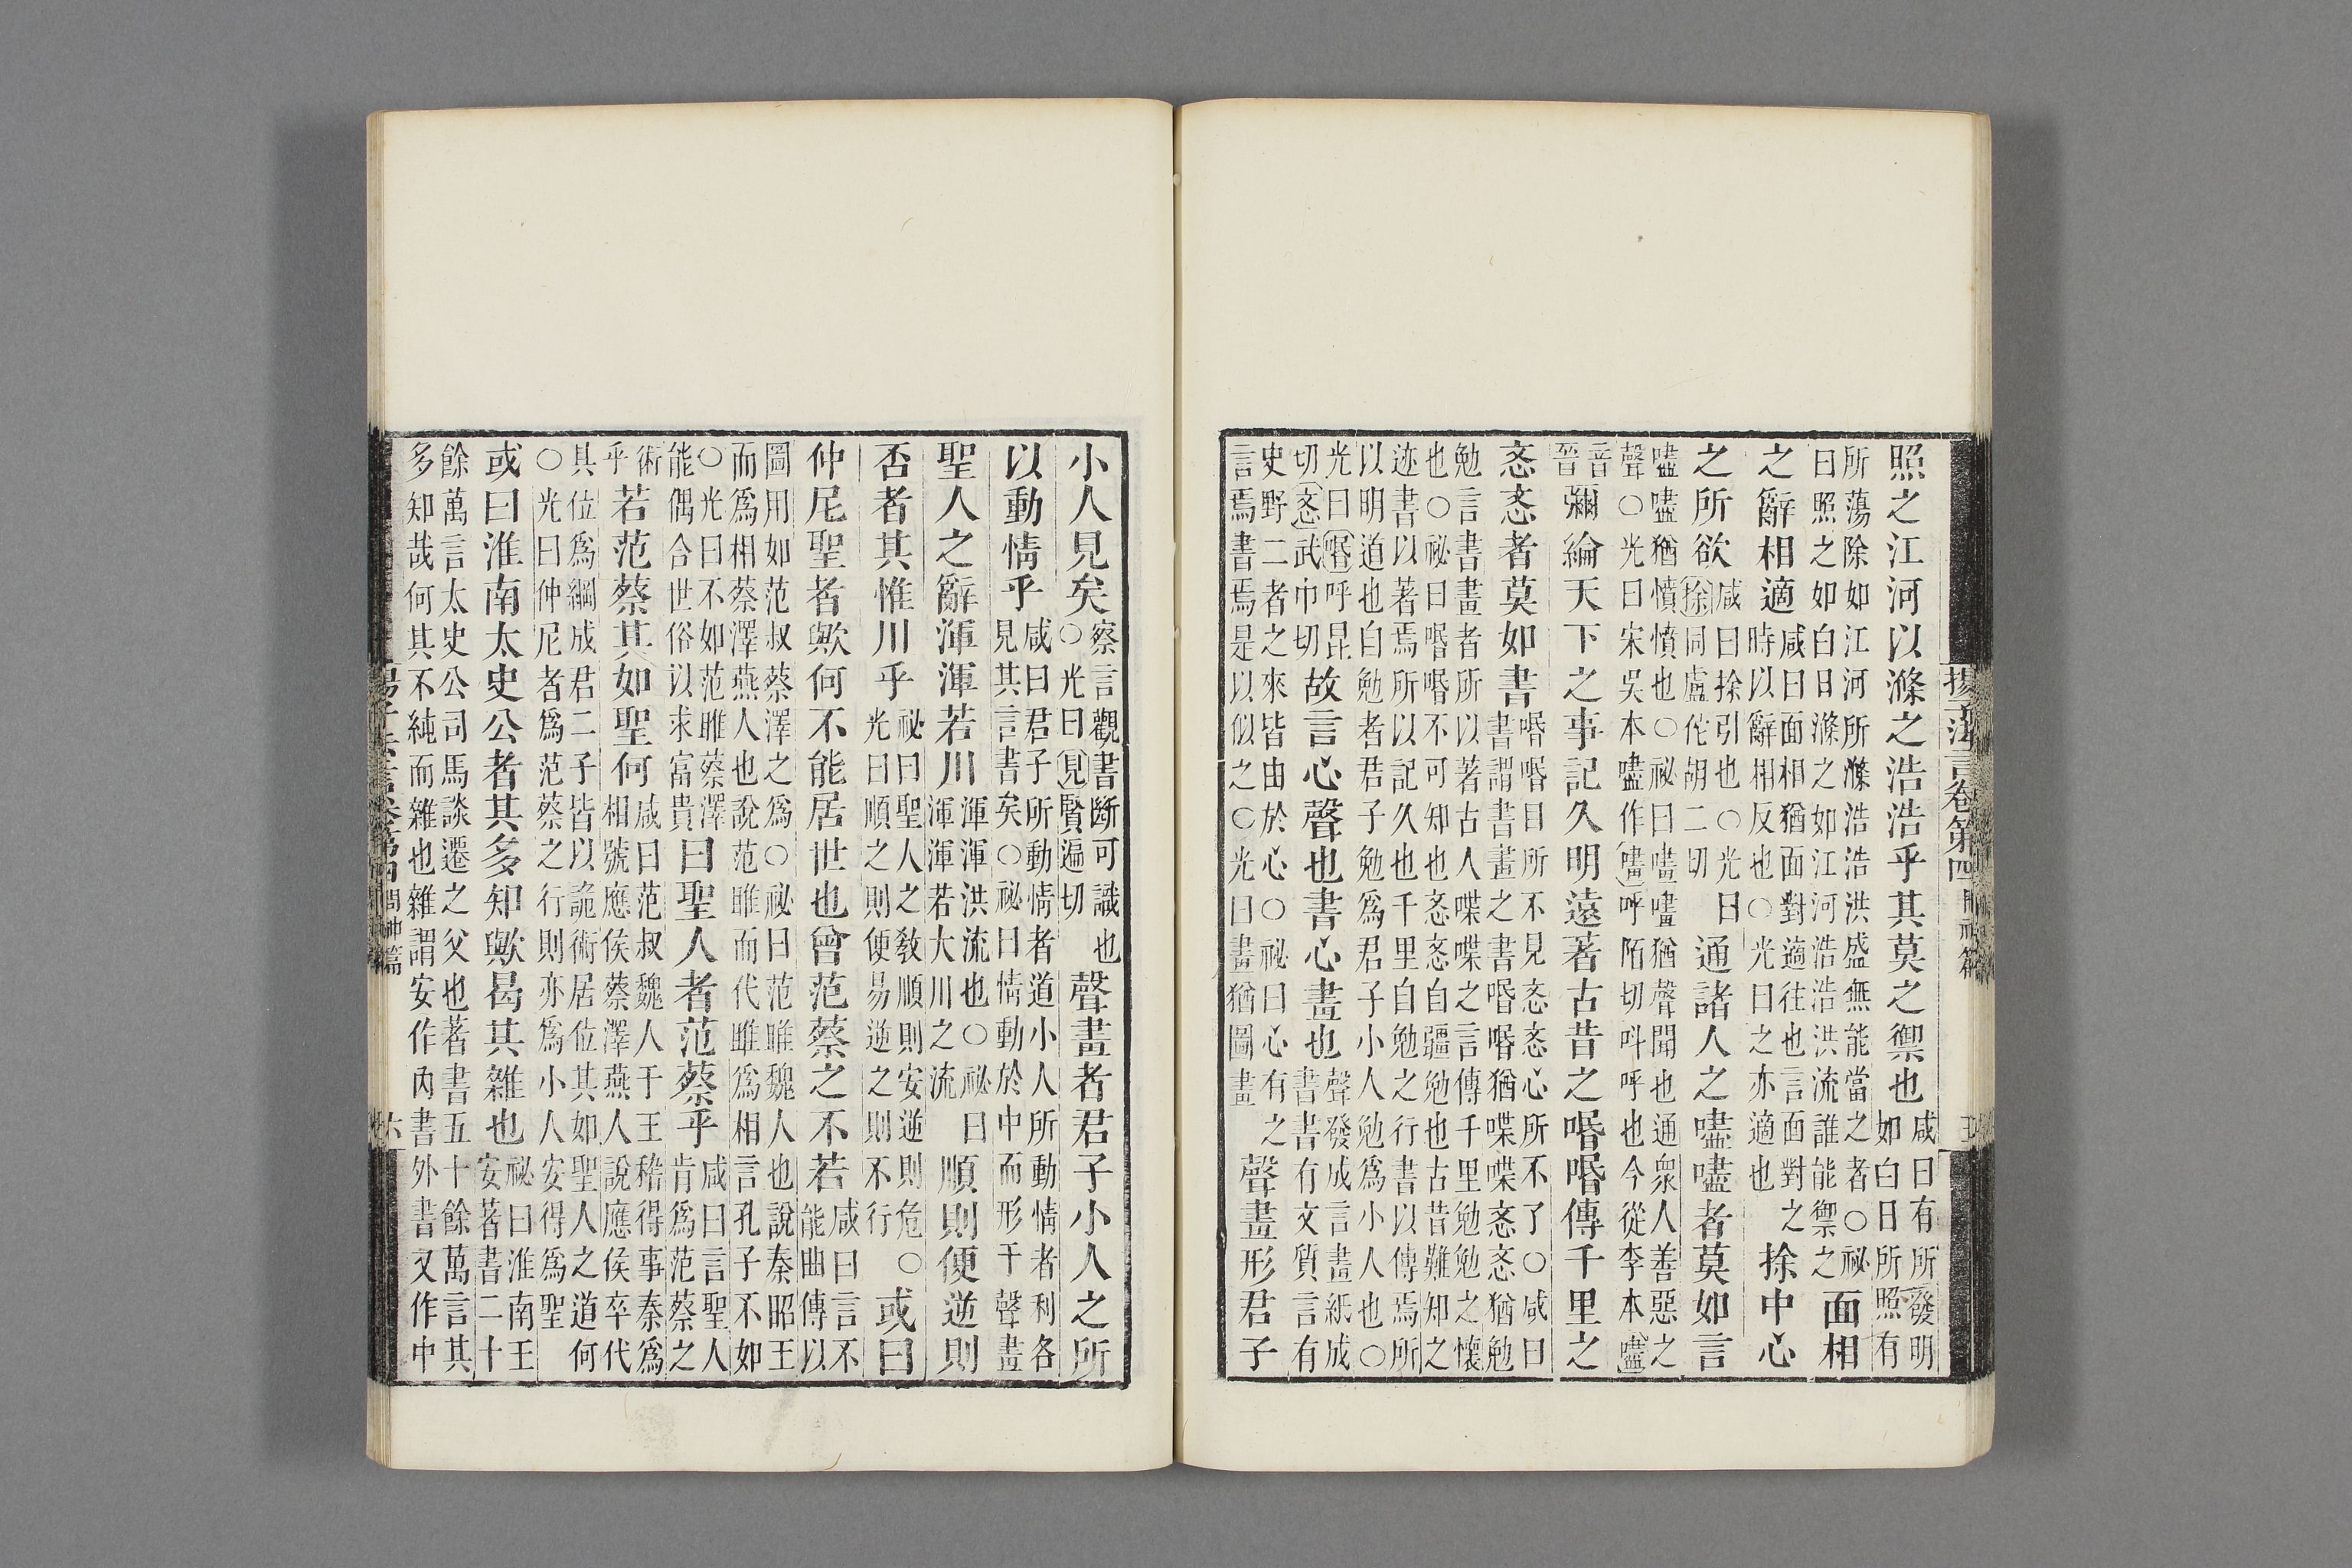 照之江河以滌之浩浩乎其莫之禦也咸曰有所發明如白日所照有
所蕩除如江河所滌浩浩洪盛無能當之者○祕曰照之如白日滌之如江河浩浩洪流誰能禦之面相
之辭相適咸曰面相猶面對適往也言面對之時以辭相反也○光曰之亦適也捈中心
之所欲咸曰捈引也○光曰捈同盧佗胡二切通諸人之㗲㗲者莫如言
㗲㗲猶憤憤也○祕曰㗲㗲猶聲聞也通衆人善惡之聲○光曰宋吳本㗲作嚍嚍呼陌切呌呼也今從李本㗲
音晉彌綸天下之事記久明遠著古昔之㖧㖧傳千里之
忞忞者莫如書㖧㖧目所不見忞忞心所不了○咸曰書謂書畫之書㖧㖧猶喋喋忞忞猶勉
勉言書畫者所以著古人喋喋之言傳千里勉勉之懷也○祕曰㖧㖧不可知也忞忞自彊勉也古昔難知之
迹書以著焉所以記久也千里自勉之行書以傳焉所以明道也自勉者君子勉爲君子小人勉爲小人也○
光曰㖧呼昆切忞武巾切故言心聲也書心畫也聲發成言畫紙成書書有文質言有
史野二者之來皆由於心○祕曰心有之言焉書焉是以似之○光曰畫猶圖畫聲畫形君子
小人見矣察言觀書斷可識也○光曰見賢遍切聲畫者君子小人之所
以動情乎咸曰君子所動情者道小人所動情者利各見其言書矣○祕曰情動於中而形于聲畫
聖人之辭渾渾若川渾渾洪流也○祕曰渾渾若大川之流順則便逆則
否者其惟川乎祕曰聖人之敎順則安逆則危○光曰順之則便易逆之則不行或曰
仲尼聖者歟何不能居世也曾范蔡之不若咸曰言不能曲傳以
圖用如范叔蔡澤之爲○祕曰范睢魏人也說秦昭王而爲相蔡澤燕人也說范睢而代睢爲相言孔子不如
○光曰不如范睢蔡澤能偶合世俗以求富貴曰聖人者范蔡乎咸曰言聖人肯爲范蔡之
術乎若范蔡其如聖何咸曰范叔魏人于王稽得事秦爲相號應侯蔡澤燕人說應侯卒代
其位爲綱成君二子皆以詭術居位其如聖人之道何○光曰仲尼者爲范蔡之行則亦爲小人安得爲聖
或曰淮南太史公者其多知歟曷其雜也祕曰淮南王安著書二十
餘萬言太史公司馬談遷之父也著書五十餘萬言其多知哉何其不純而雜也雜謂安作內書外書又作中